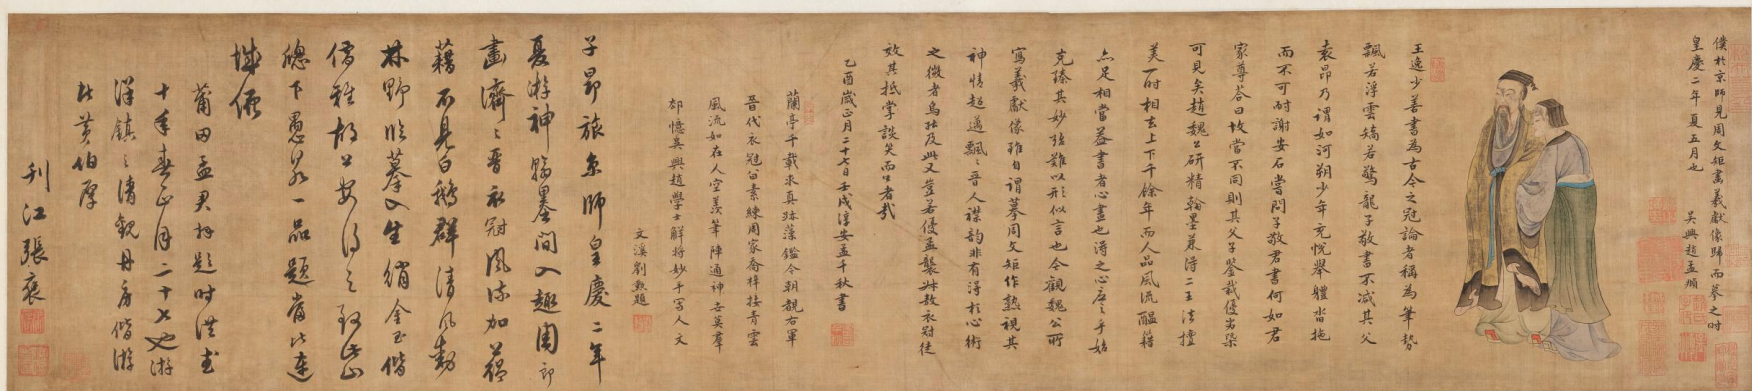 僕於京師見周文矩畫羲獻像歸而摹之時
皇慶二年夏五月也
吳興趙孟頫
王逸少善書為古今之冠論者稱為筆勢
飄若浮雲矯若驚龍子敬書不減其父
袁昂乃謂如河朔少年充悅舉體沓拖
而不可耐謝安石嘗問子敬君書何如君
家尊荅曰故當不同則其父子鑒裁優劣槩
可見矣趙魏公研精翰墨兼得二王法擅
美一時相去上下千餘年而人品風流醞藉
亦足相當益書者心畫也得之心應之手始
克臻其妙殆難以形似言也今觀魏公所
寫羲獻像雖自謂摹周文矩作熟視其
神情超邁飄飄晉人襟韻非有得於心術
之微者烏能及此又豈若優孟襲叔敖衣冠徒
效其抵掌談笑而已者哉
乙酉歲正月二十七日壬戌淳安孟千秋書
蘭亭千載求真跡藻鑑今朝覩右軍
晉代衣冠留素練周家喬梓接青雲
風流如在人空羨筆陣通神安莫羣
却憶吳興趙學士解將妙手寫人文
文溪劉勲題
子昂旅京師皇慶二年
夏游神翰墨間入趣周郎
畫濟濟晉衣冠風流加藴
藉不見白鵝羣清風動
林野臨摹入生綃金玉偕
儒雅
聰下愚
一品題
城
莆田孟君好題時洪武
十年春正月二十七也游
洋鎮之清觀丹房偕游
此黃伯厚
刋江張衮